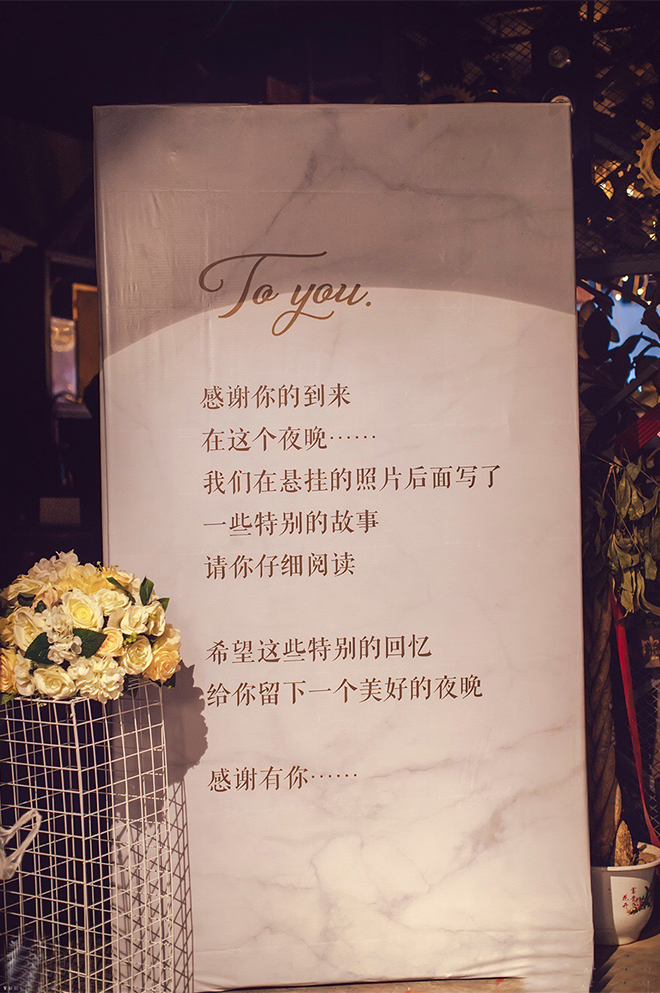 To you.
感谢你的到来
在这个夜晚······
我们在悬挂的照片后面写了
一些特别的故事
请你仔细阅读
希望这些特别的回忆
给你留下一个美好的夜晚
感谢有你······